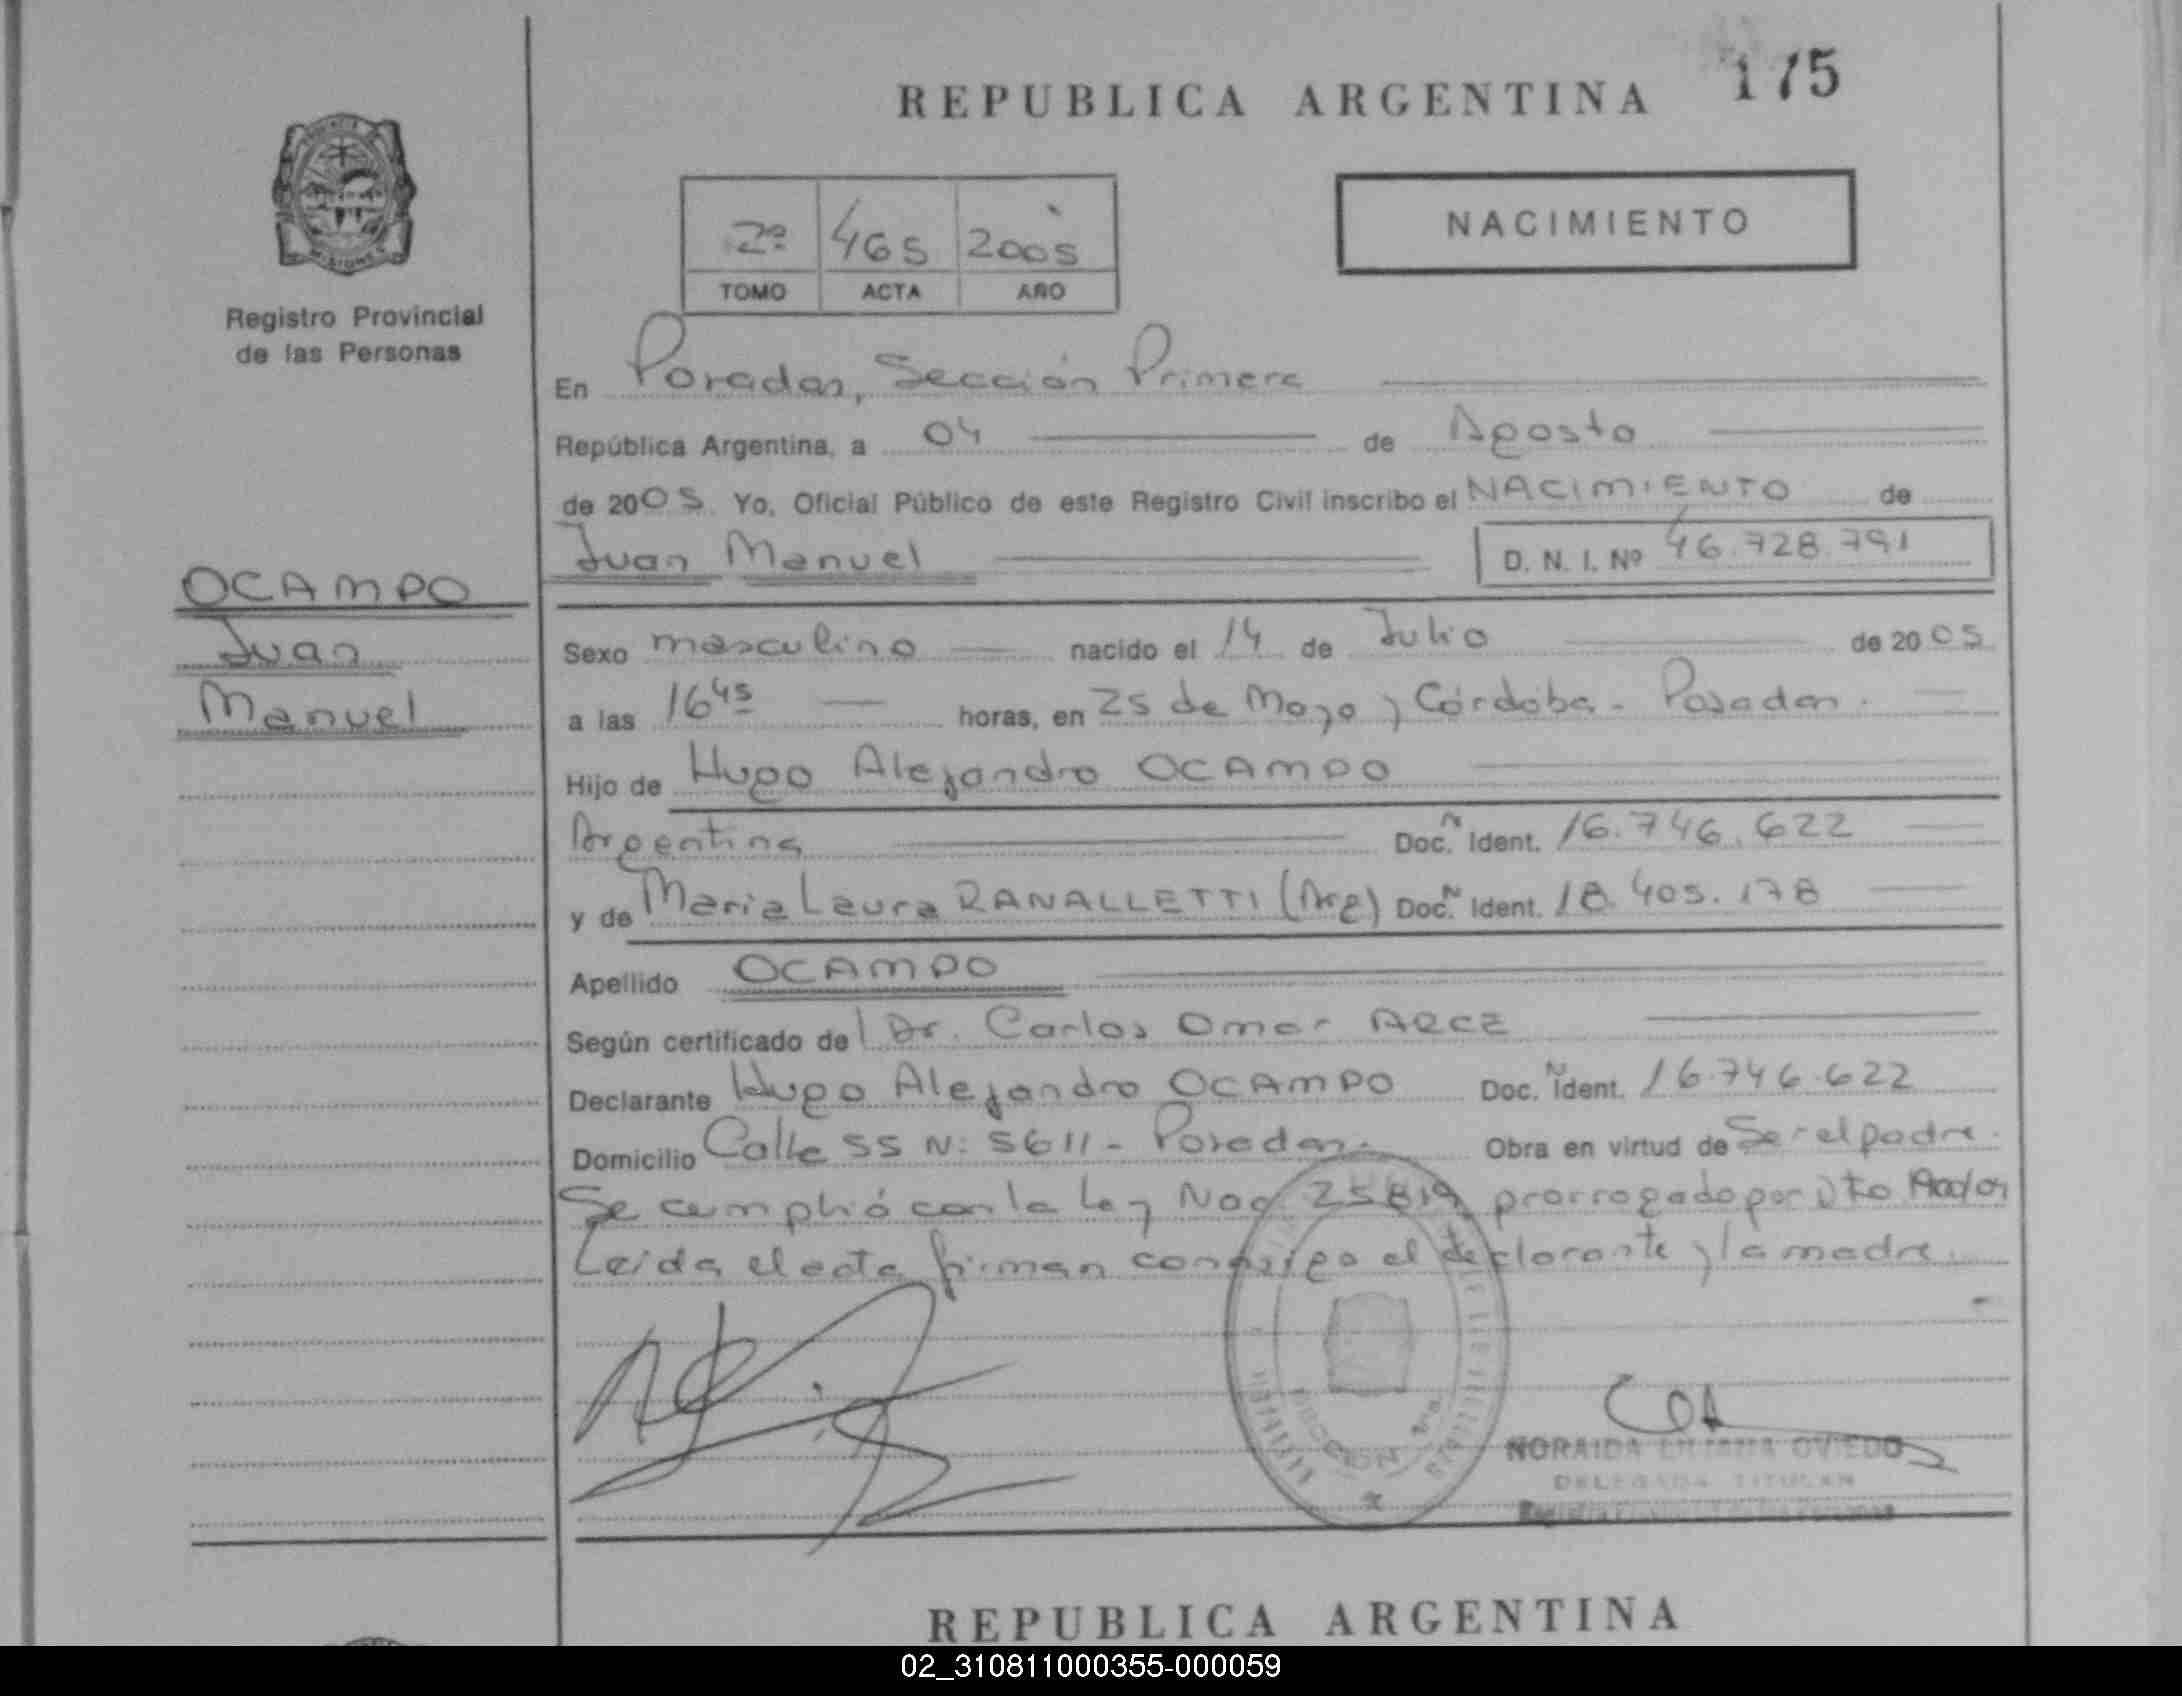 REPUBLICA ARGENTINA 175
Registro Provincial
de las Personas
2º 465 2005
TOMO ACTA AÑO
NACIMIENTO
En Posadas, Sección Primera
República Argentina, a 04 de Agosto
de 2005. Yo, Oficial Público de este Registro Civil inscribo el NACIMIENTO de
Juan Manuel D. N. I. Nº 46.728.791
OCAMPO
Juan
Manuel
Sexo masculino nacido el 14 de Julio de 2005
a las 16 45 horas, en 25 de Mayo y Córdoba - Posadas.
Hijo de Hugo Alejandro OCAMPO
Argentina Doc. N Ident. 16.746.622
y de Maria Laura RANALLETTI (Arg) Doc. N Ident. 18.405.178
Apellido OCAMPO
Según certificado de Dr. Carlos Omar ARCE
Declarante Hugo Alejandro OCAMPO Doc. N Ident. 16.746.622
Domicilio Calle 55 N: 5611 - Posadas. Obra en virtud de Ser el padre.
Se cumplió con la Ley Nac 25819 prorrogado por Dto
Leida el acta firman conmigo el declarante y la madre.
SECCION 1ra.
NORAIDA LILIANA OVIEDO
DELEGADA TITULAR
REPUBLICA ARGENTINA
02_310811000355-000059